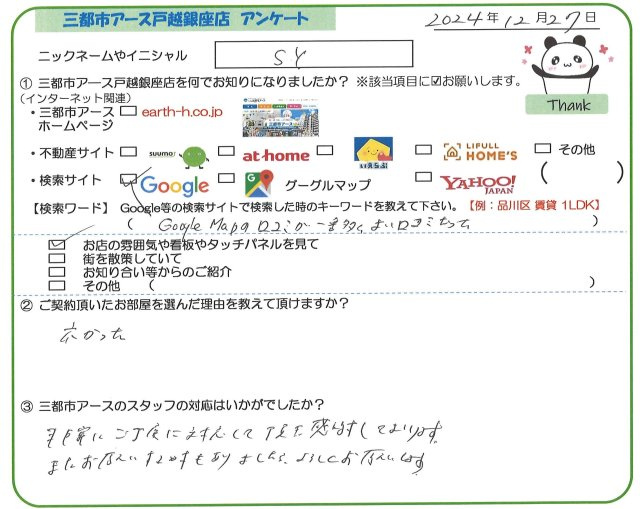 三都市アース戸越銀座店 アンケート
2024年12月27日
ニックネームやイニシャル SY
① 三都市アース戸越銀座店を何でお知りになりましたか？ ※該当項目に☑お願いします。
(インターネット関連)
・三都市アース ホームページ □ earth-h.co.jp
Thank
・不動産サイト □ suumo □ at home □ いえらぶ □ LIFULL HOME'S □ その他
・検索サイト ☑ Google □ グーグルマップ □ YAHOO! JAPAN ( )
【検索ワード】 Google等の検索サイトで検索した時のキーワードを教えて下さい。【例：品川区 賃貸 1LDK】
( Google Mapの口コミが一番多く、よい口コミだった )
☑ お店の雰囲気や看板やタッチパネルを見て
□ 街を散策していて
□ お知り合い等からのご紹介
□ その他 ( )
② ご契約頂いたお部屋を選んだ理由を教えて頂けますか？
広かった
③ 三都市アースのスタッフの対応はいかがでしたか？
ご丁寧に
よろしくお願いします